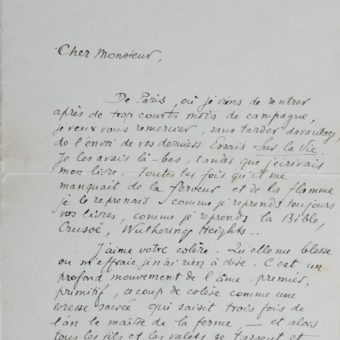 Cher Monsieur,
De Paris, où je viens de rentrer
après de trop courts mois de campagne,
je veux vous remercier, sans tarder davantage,
de l'envoi de vos derniers Essais Sur la Vie.
Je les avais là-bas, tandis que j'écrivais
mon livre. Toutes les fois qu'il me
manquait de la ferveur et de la flamme
je le reprenais, comme je reprends toujours
vos livres, comme je reprends la Bible,
Crusoë, Wuthering Heights...
J'aime votre colère. Qu'elle me blesse
ou m'effraie, je n'ai rien à dire. C'est un
profond mouvement de l'âme, premier,
primitif, ce coup de colère comme une
ivresse sacrée qui saisit trois fois de
l'an le maître de la ferme, — et alors
tous les fils et les valets se taisent et